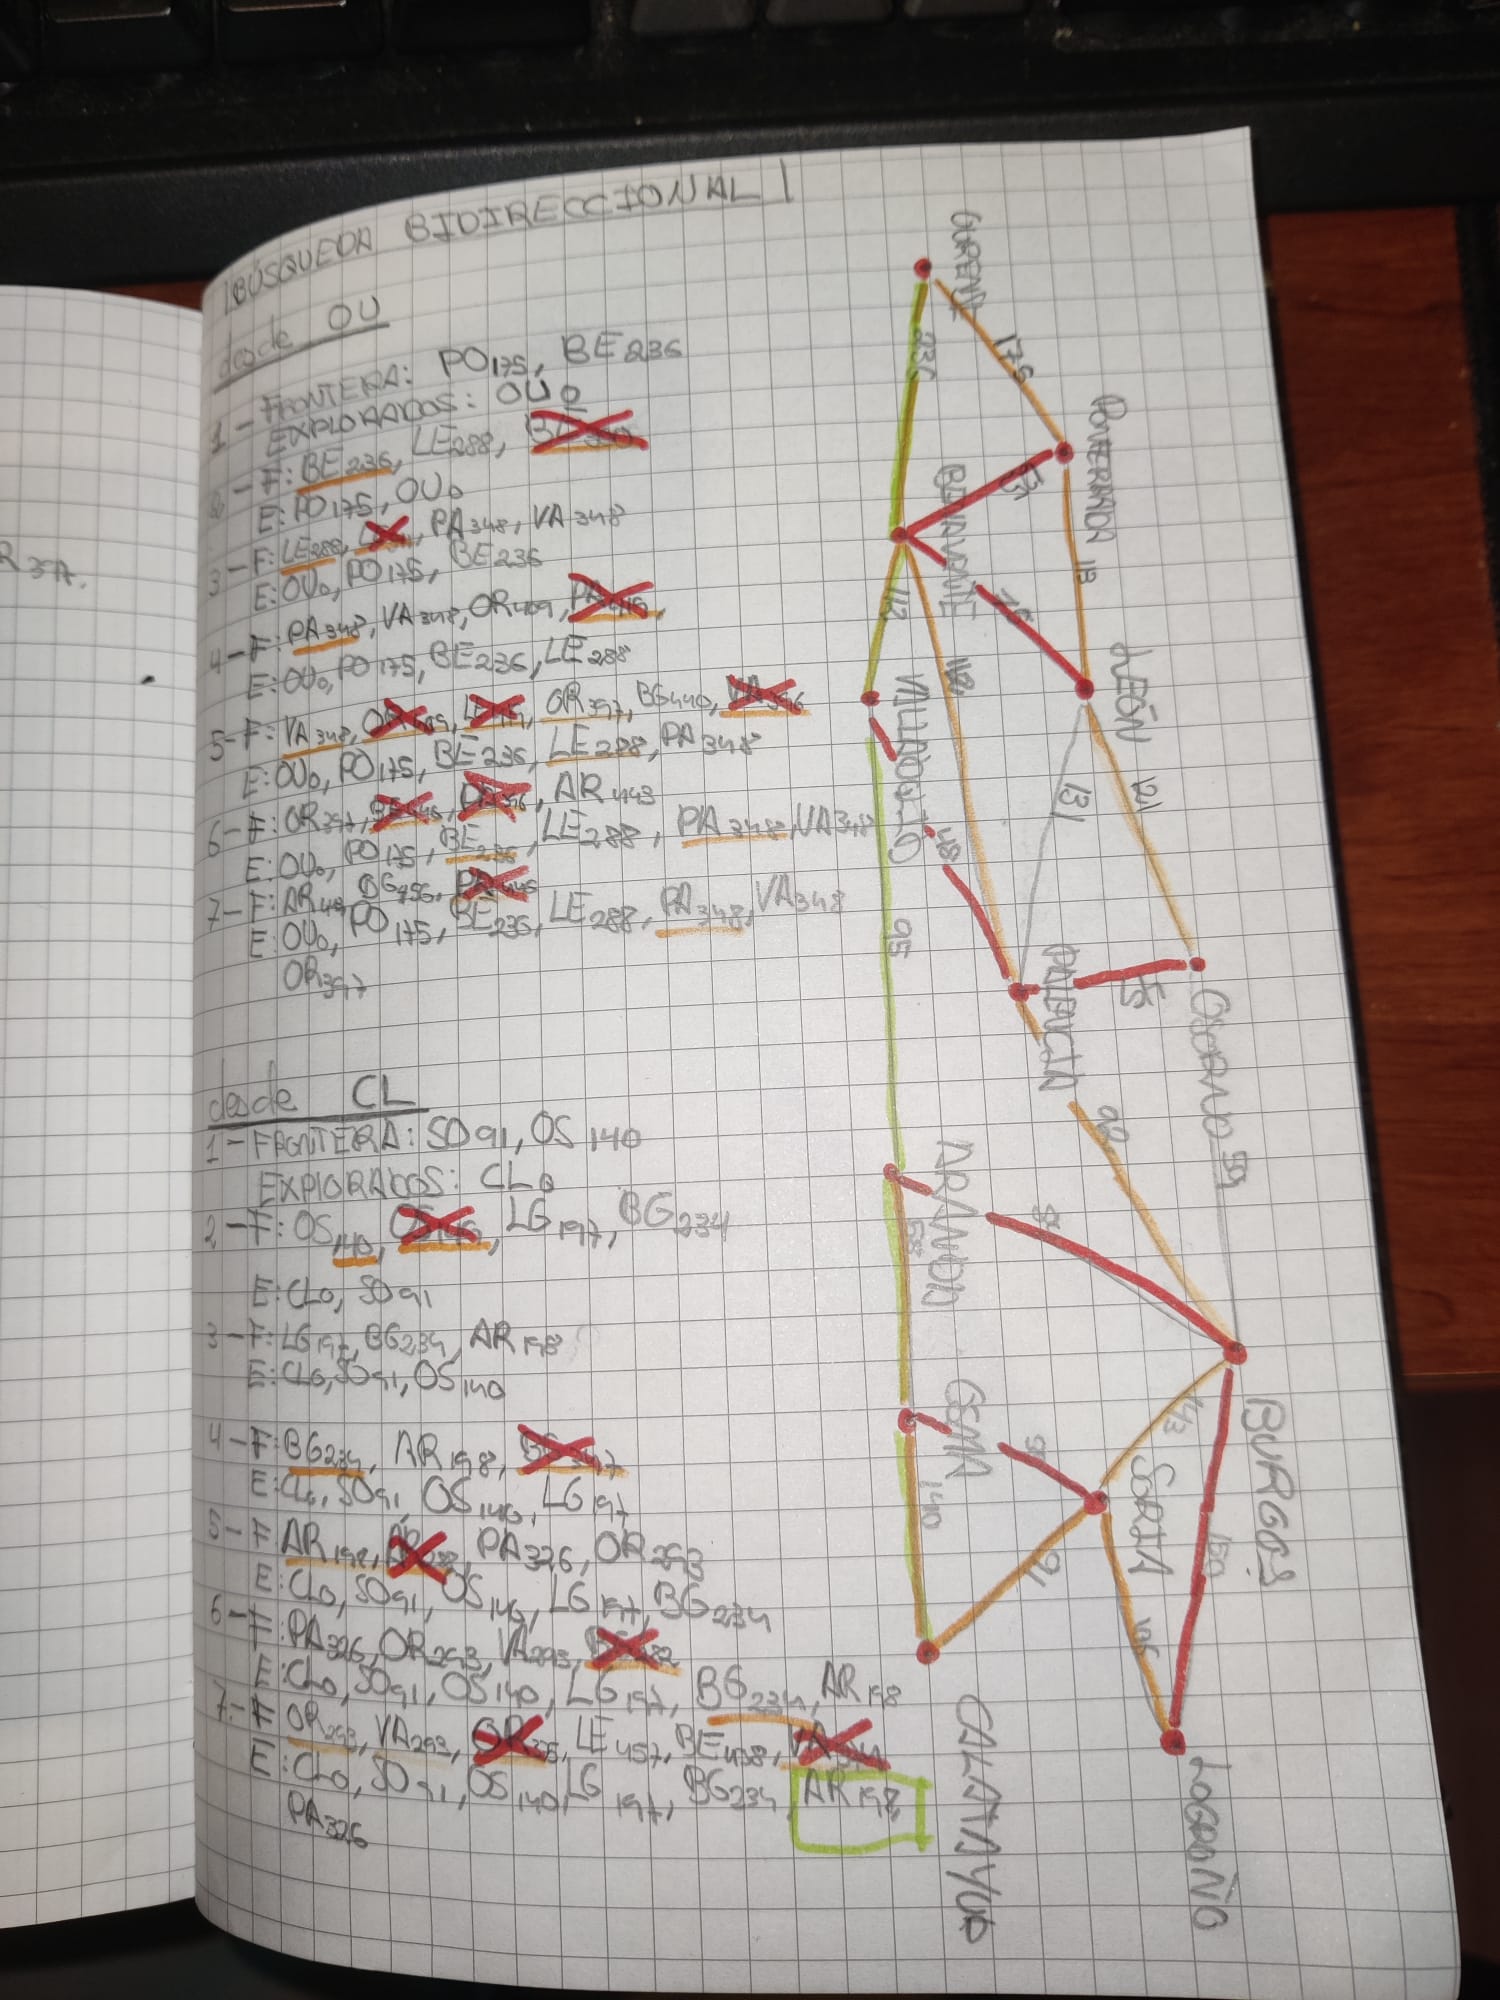 R 397.
BÚSQUEDA BIDIRECCIONAL
desde OU
1 - FRONTERA: PO175, BE236
EXPLORADOS: OU0
2 - F: BE236, LE288,
E: PO175, OU0
3 - F: LE288, PA348, VA348
E: OU0, PO175, BE236
4 - F: PA348, VA348, OR409,
E: OU0, PO175, BE236, LE288
5 - F: VA348, OR397, BG440,
E: OU0, PO175, BE236, LE288, PA348
6 - F: OR397, AR443
E: OU0, PO175, BE236, LE288, PA348, VA348
7 - F: AR443, BG456,
E: OU0, PO175, BE236, LE288, PA348, VA348
OR397
desde CL
1 - FRONTERA: SO91, OS140
EXPLORADOS: CL0
2 - F: OS140, LG197, BG234
E: CL0, SO91
3 - F: LG197, BG234, AR198
E: CL0, SO91, OS140
4 - F: BG234, AR198,
E: CL0, SO91, OS140, LG197
5 - F AR198, PA326, OR293
E: CL0, SO91, OS140, LG197, BG234
6 - F: PA326, OR293, VA293,
E: CL0, SO91, OS140, LG197, BG234, AR198
7 - F OR293, VA293, LE457, BE438,
E: CL0, SO91, OS140, LG197, BG234, AR198
PA326
OURENSE
175
236
PONFERRADA
BENAVENTE
113
112
112
LEÓN
VALLADOLID
131
121
48
95
PALENCIA
OSORNO
59
92
ARANDA
58
BURGOS
OSMA
143
SORIA
150
140
91
106
CALATAYUD
LOGROÑO